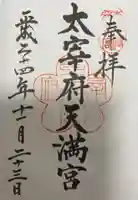 奉拝
太宰府天満宮
平成二十四年十二月二十三日